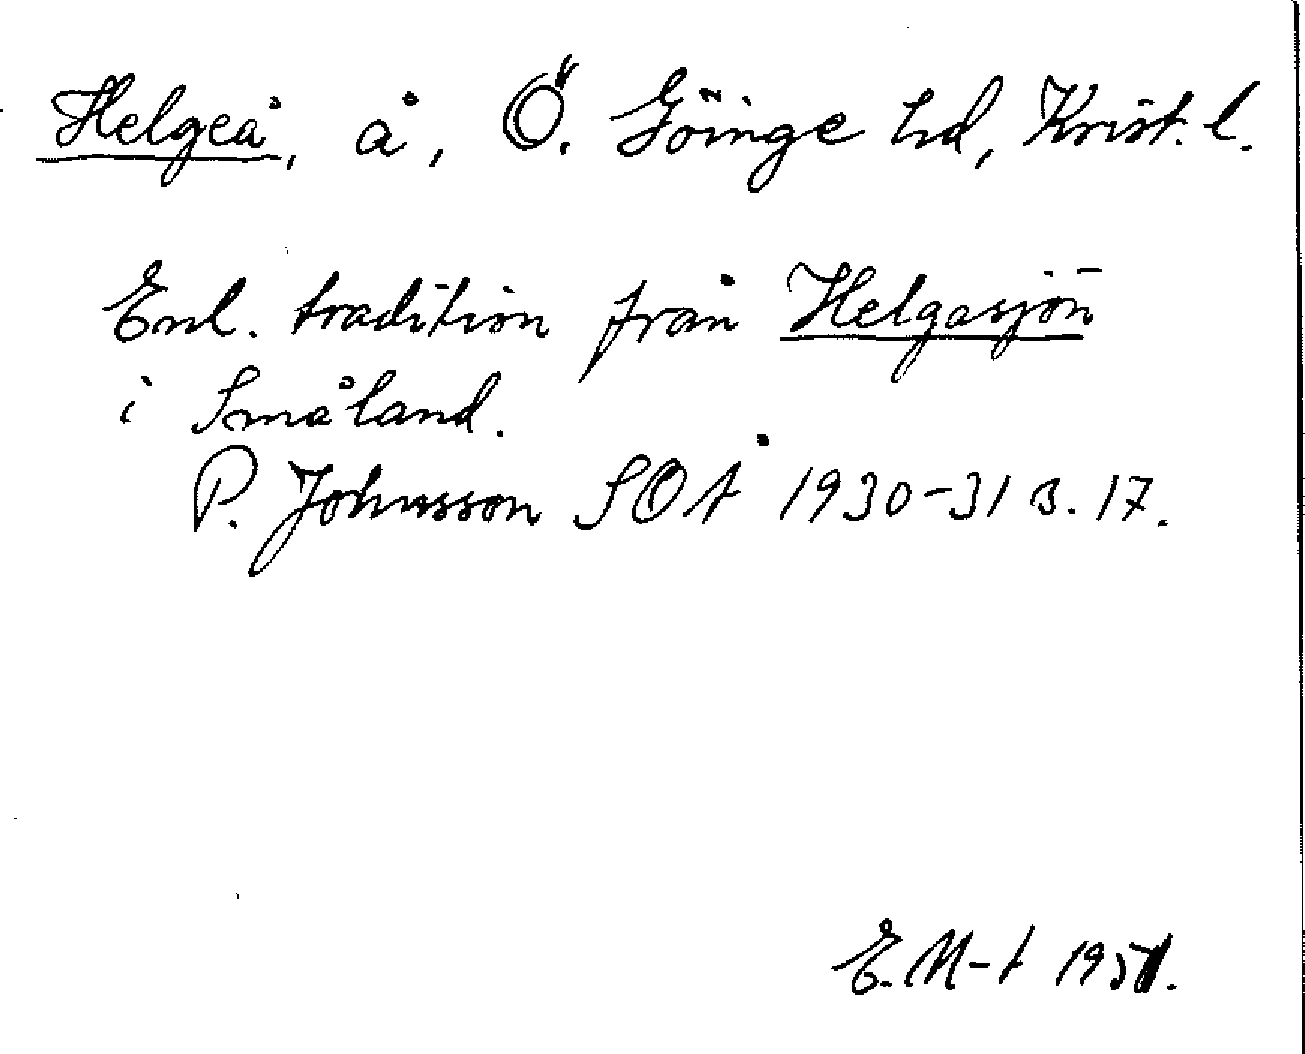 Helgeå, å, Ö. Göinge hd, Krist. l.
Enl. tradition från Helgasjön
i Småland.
P. Johnsson SOÅ 1930-31 s. 17.
E. M-t 1951.